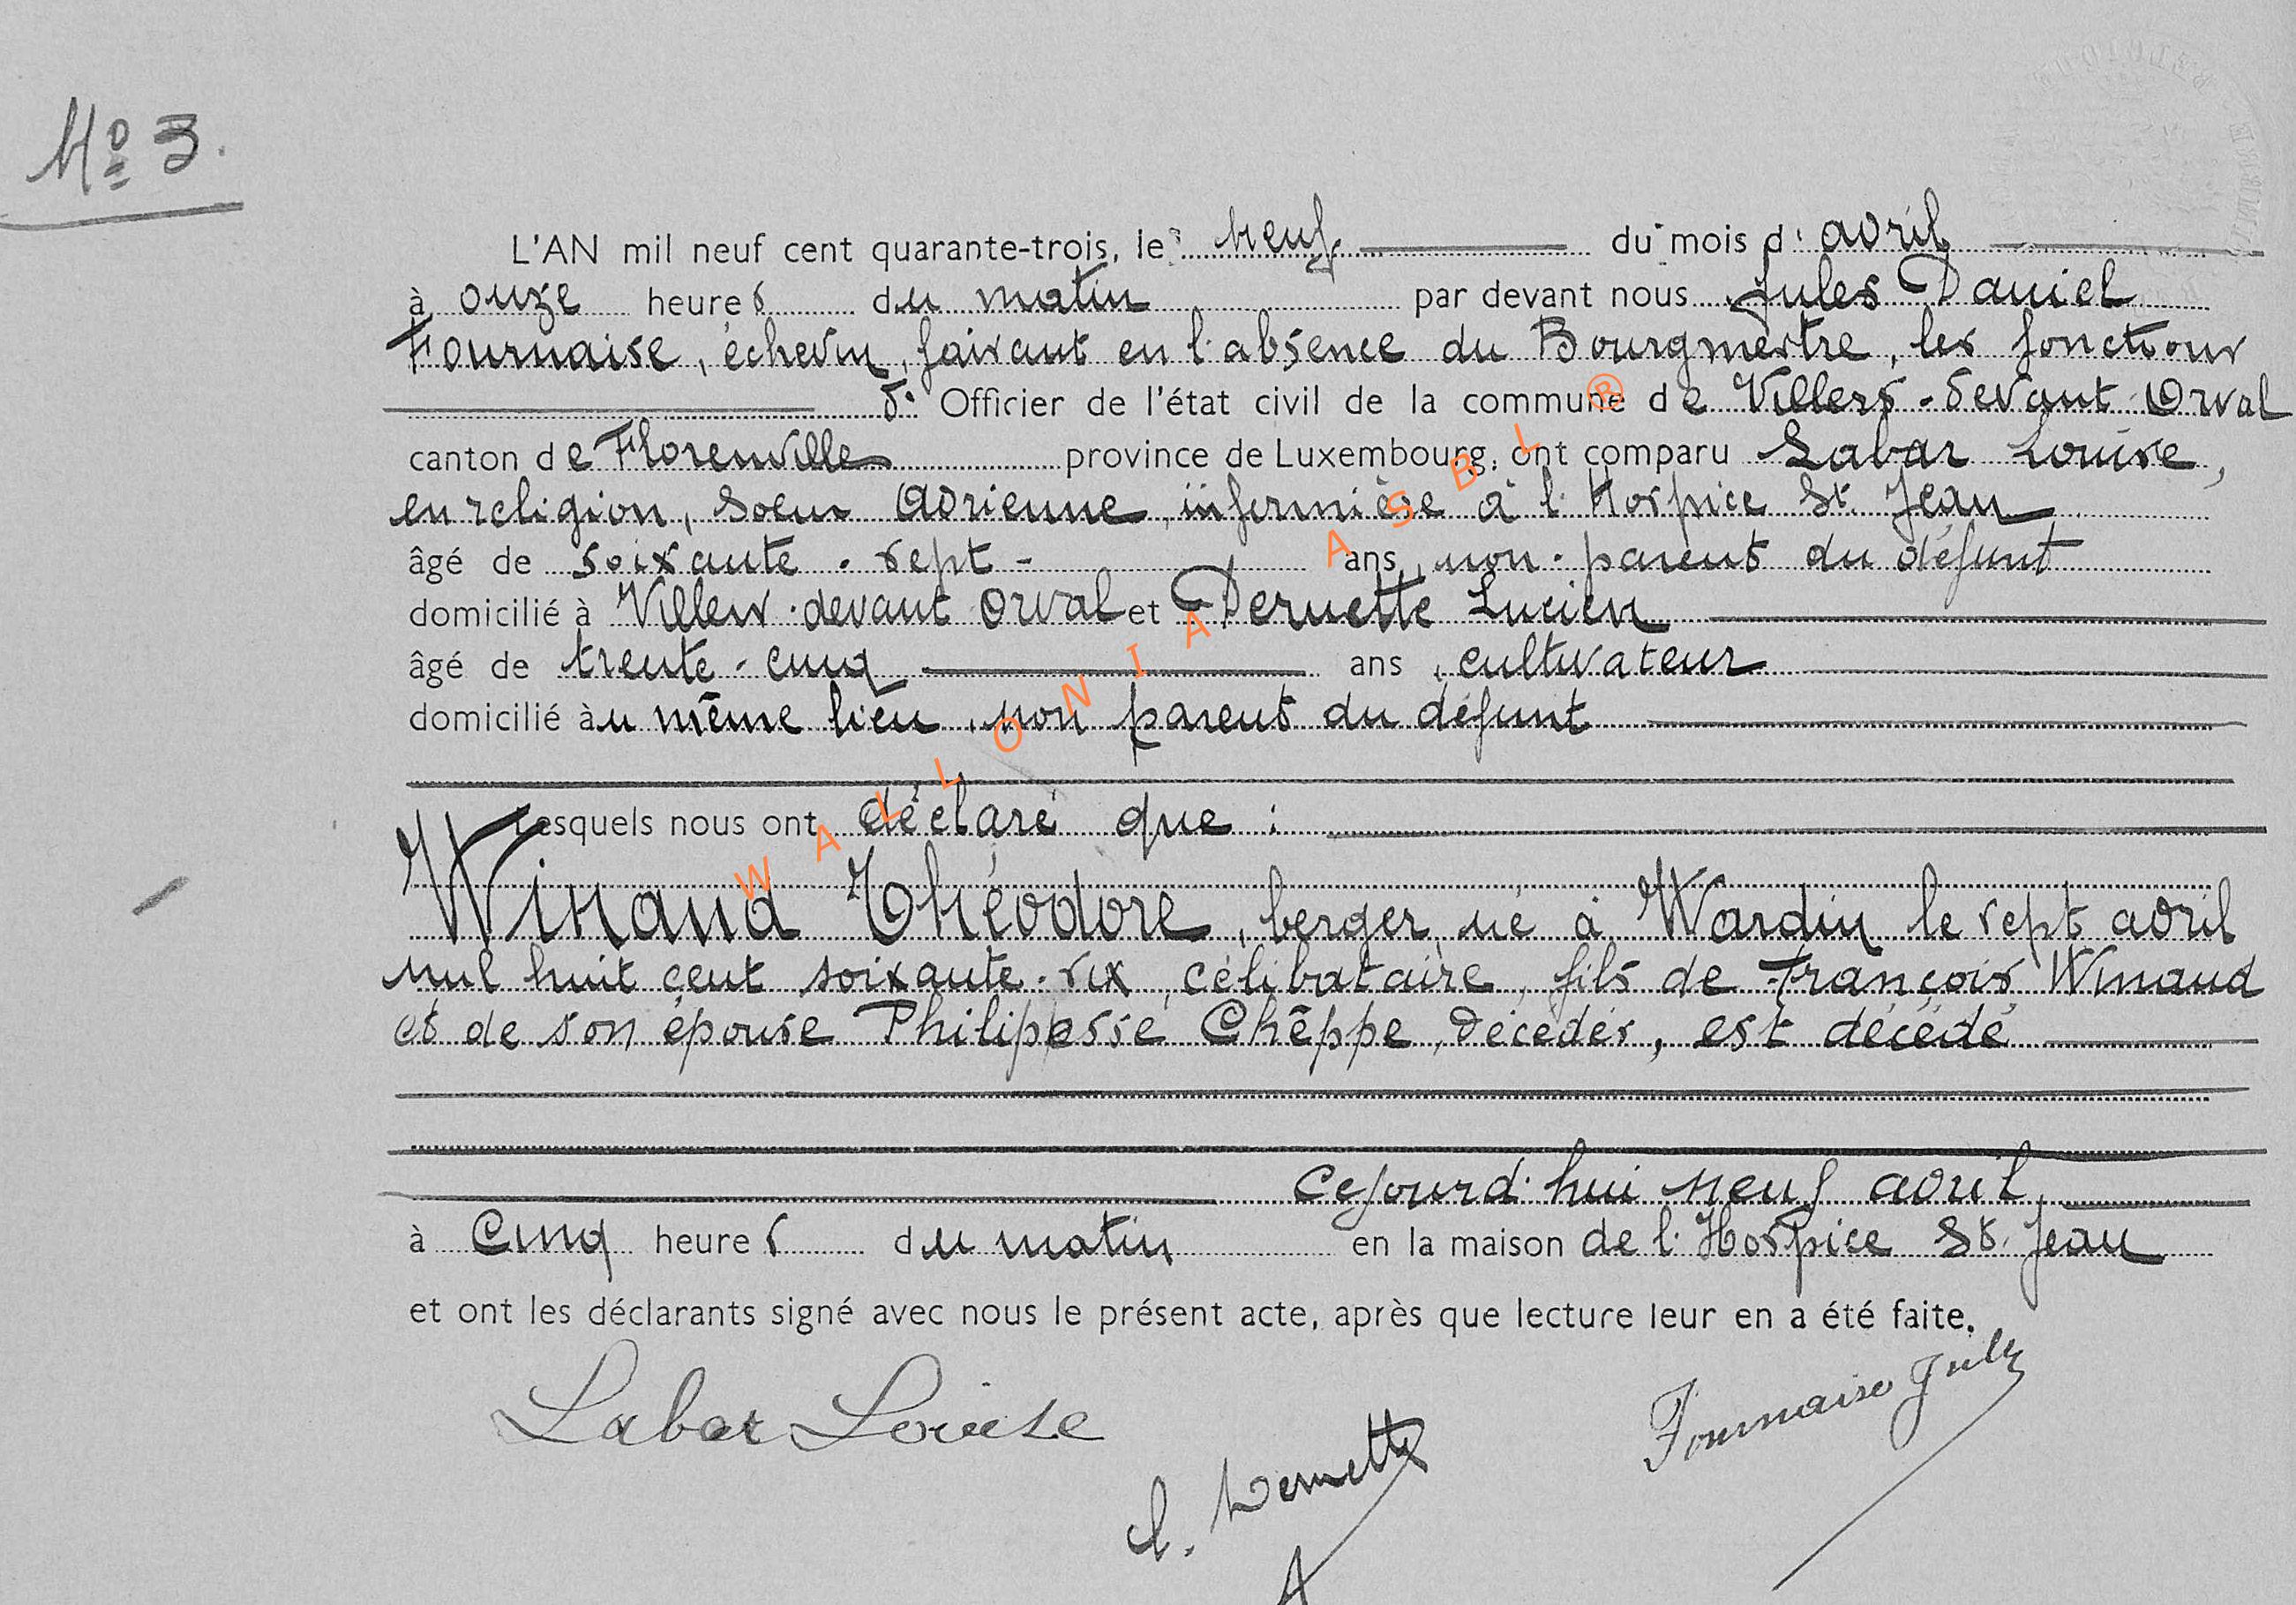 N° 3.
L'AN mil neuf cent quarante-trois, le neuf du mois d'avril
à onze heures du matin par devant nous Jules Daniel
Fournaise, échevin, faisant en l'absence du Bourgmestre, les fonctions
d' Officier de l'état civil de la commune de Villers-devant-Orval
canton de Florenville province de Luxembourg, ont comparu Labar Louise,
en religion, Soeur Adrienne, infirmière à l'Hospice St. Jean
âgé de soixante-sept - ans, non-parent du défunt
domicilié à Villers-devant-Orval et Dernette Lucien
âgé de trente-cinq ans, cultivateur
domicilié au même lieu, non parent du défunt
Lesquels nous ont déclaré que :
Winand Théodore, berger, né à Wardin le sept avril
mil huit cent soixante-six, célibataire, fils de François Winand
et de son épouse Philippesse Chêppe, décédés, est décédé
Cejourd'hui neuf avril,
à Cinq heures du matin en la maison de l'Hospice St. Jean
et ont les déclarants signé avec nous le présent acte, après que lecture leur en a été faite.
Labar Louise
L. Dernette
Fournaise Jules
WALLONIA ASBL ®